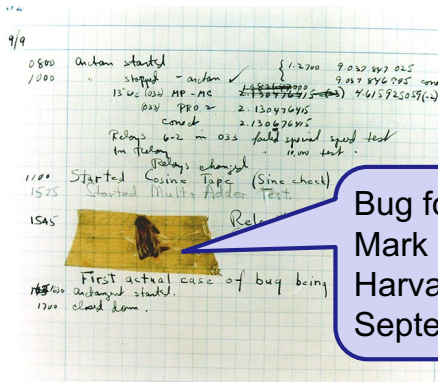 9/9
0800 Antan started
1000 " stopped - antan ✓ { 1.2700 9.037 847 025
9.037 846 995
13"uc (032) MP-MC 2.130476415 4.615925059(-2)
(033) PRO 2 2.130476415
2.130676415
Relays 6-2 in 033 failed special speed test
in relay 10,000 test.
Relays changed
1100 Started Cosine Tape (Sine check)
1525 Started Mult+ Adder Test.
1545
First actual case of bug being
arctangent started.
1700 closed down.
Bug fo
Mark
Harva
Septe